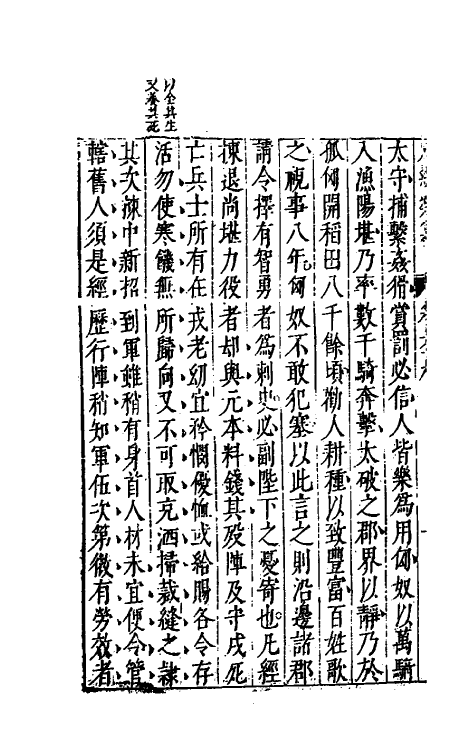 以全其生
又养其死
太守捕繫姦猾賞罰必信人皆樂爲用匈奴以萬騎
入漁陽堪乃率數千騎奔擊太破之郡界以靜乃於
狐奴開稻田八千餘頃勸人耕種以致豐富百姓歌
之視事八年匈奴不敢犯塞以此言之則沿邊諸郡
請令擇有智勇者爲刺史必副陛下之憂寄也凡經
揀退尚堪力役者却與元本料錢其殁陣及守戍死
亡兵士所有在戎老幼宜矜憫優恤或給賜各令存
活勿使寒饑無所歸向又不可取充洒掃裁縫之隷
其次揀中新招到軍雖稍有身首人材未宜便令管
轄舊人須是經歷行陣稍知軍伍次第微有勞效者